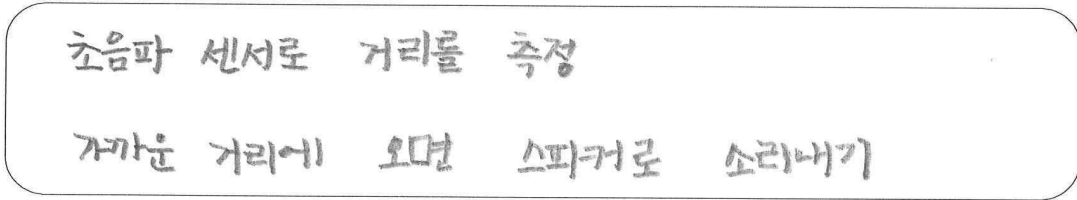 초음파 센서로 거리를 측정
가까운 거리에 오면 스피커로 소리내기